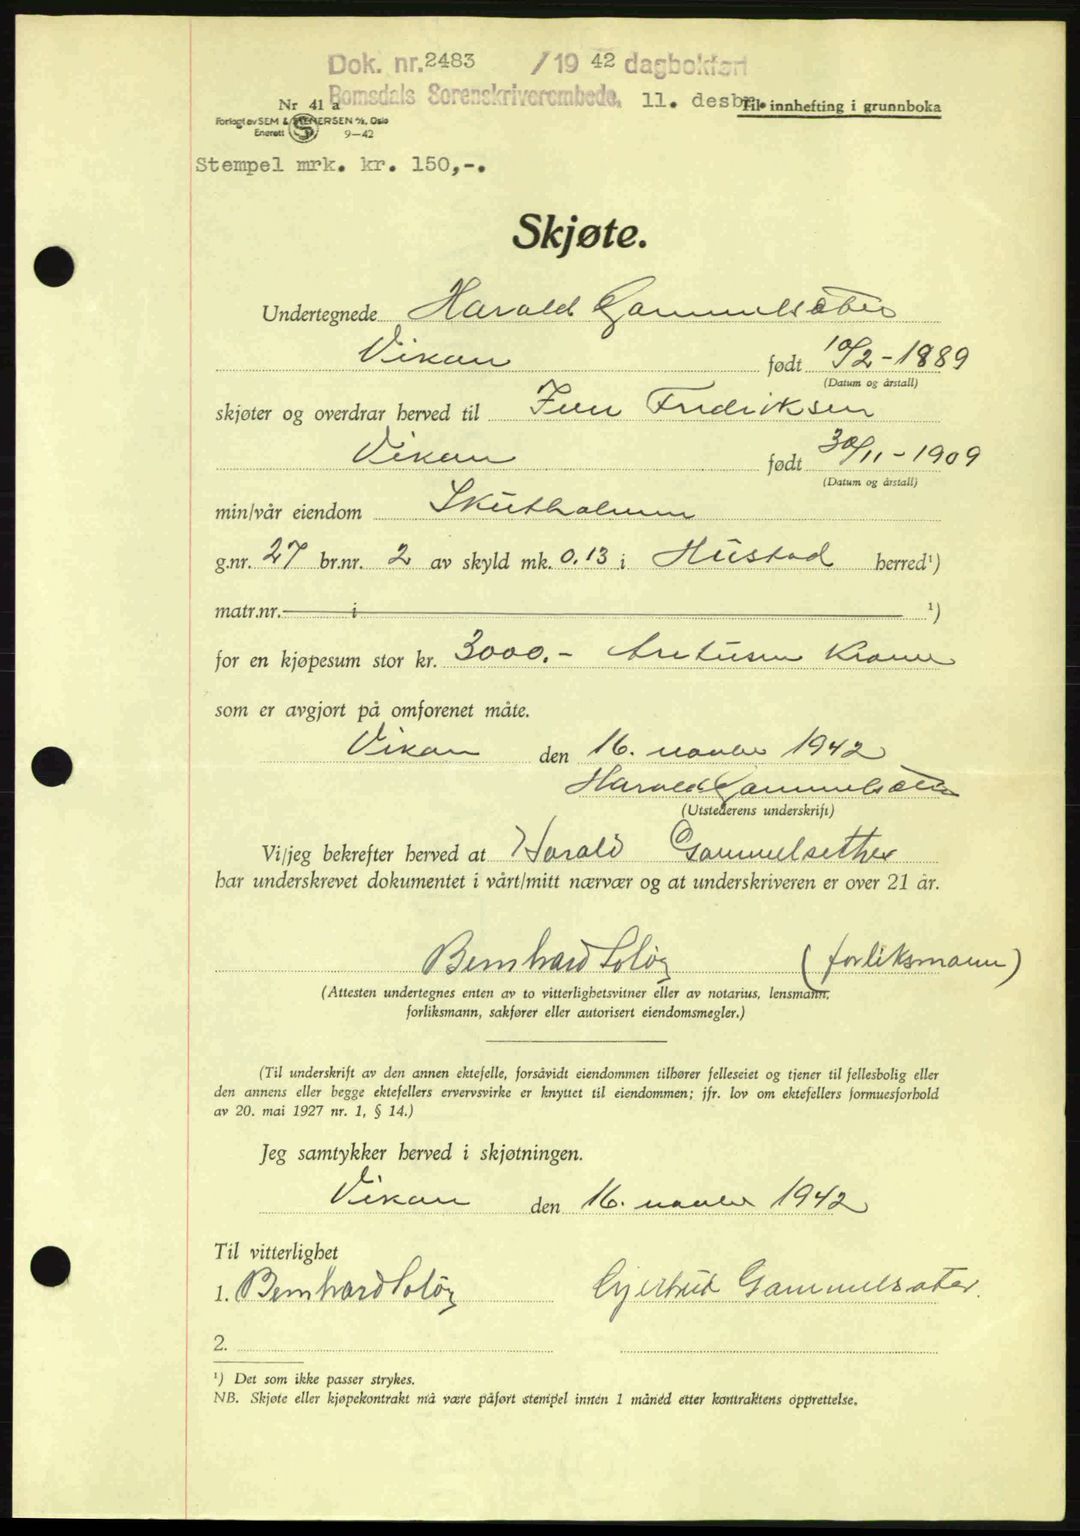 Dok. nr. 2483 /19 42 dagbokført
Romsdals Sorenskriverembede, 11. desbr.
Nr 41 a
Til innhefting i grunnboka
Forlagt av SEM & STENERSEN A/S, Oslo
Enerett S 9-42
Stempel mrk. kr. 150,-.
Skjøte.
Undertegnede Harald Gammelsæter
Vikan født 10/2 - 1889
(Datum og årstall)
skjøter og overdrar herved til Jens Fredriksen
Vikan født 30/11 - 1909
(Datum og årstall)
min/vår eiendom Skutholmen
g.nr. 27 br.nr. 2 av skyld mk. 0.13 i Hustad herred¹)
matr.nr. i ¹)
for en kjøpesum stor kr. 3000.- tretusen kroner
som er avgjort på omforenet måte.
Vikan den 16. november 1942
Harald Gammelsæter
(Utstederens underskrift)
Vi/jeg bekrefter herved at Harald Gammelsæther
har underskrevet dokumentet i vårt/mitt nærvær og at underskriveren er over 21 år.
Bernhard (forliksmann)
(Attesten undertegnes enten av to vitterlighetsvitner eller av notarius, lensmann,
forliksmann, sakfører eller autorisert eiendomsmegler.)
(Til underskrift av den annen ektefelle, forsåvidt eiendommen tilhører felleseiet og tjener til fellesbolig eller
den annens eller begge ektefellers ervervsvirke er knyttet til eiendommen; jfr. lov om ektefellers formuesforhold
av 20. mai 1927 nr. 1, § 14.)
Jeg samtykker herved i skjøtningen.
Vikan den 16. november 1942
Til vitterlighet
1. Bernhard Gjertrud Gammelsæter.
2.
¹) Det som ikke passer strykes.
NB. Skjøte eller kjøpekontrakt må være påført stempel innen 1 måned etter kontraktens opprettelse.